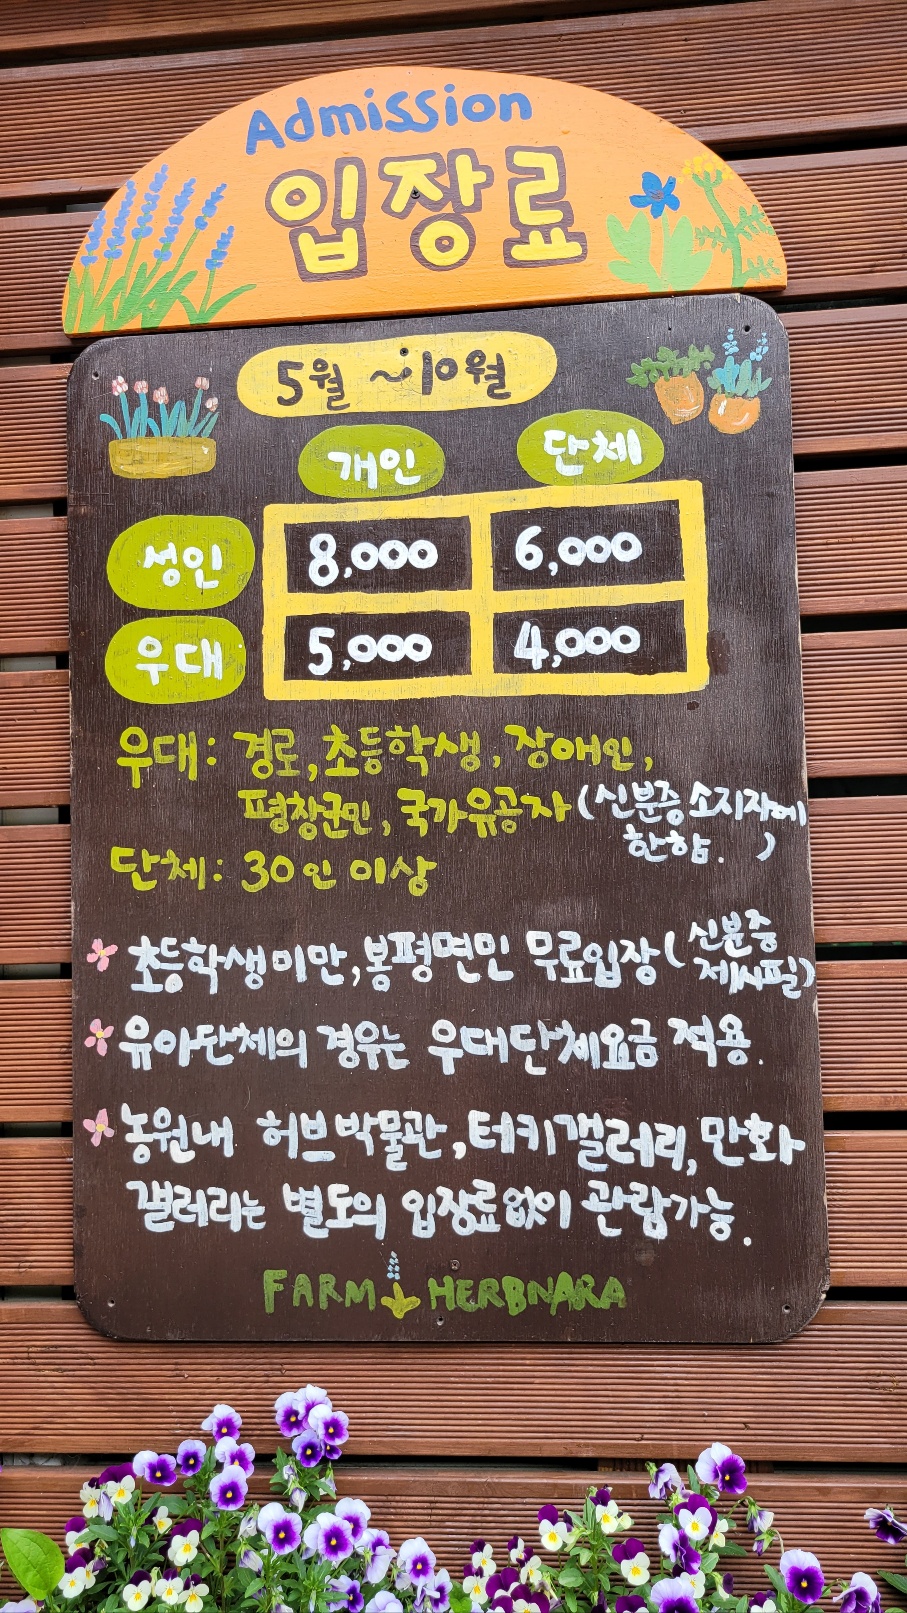 Admission
입장료
5월 ~ 10월
개인 단체
성인 8,000 6,000
우대 5,000 4,000
우대: 경로, 초등학생, 장애인,
평창군민, 국가유공자 (신분증 소지자에
한함. )
단체: 30인 이상
초등학생미만, 봉평면민 무료입장 (신분증
제시필)
유아단체의 경우는 우대단체요금 적용.
농원내 허브박물관, 터키갤러리, 만화
갤러리는 별도의 입장료없이 관람가능.
FARM HERBNARA